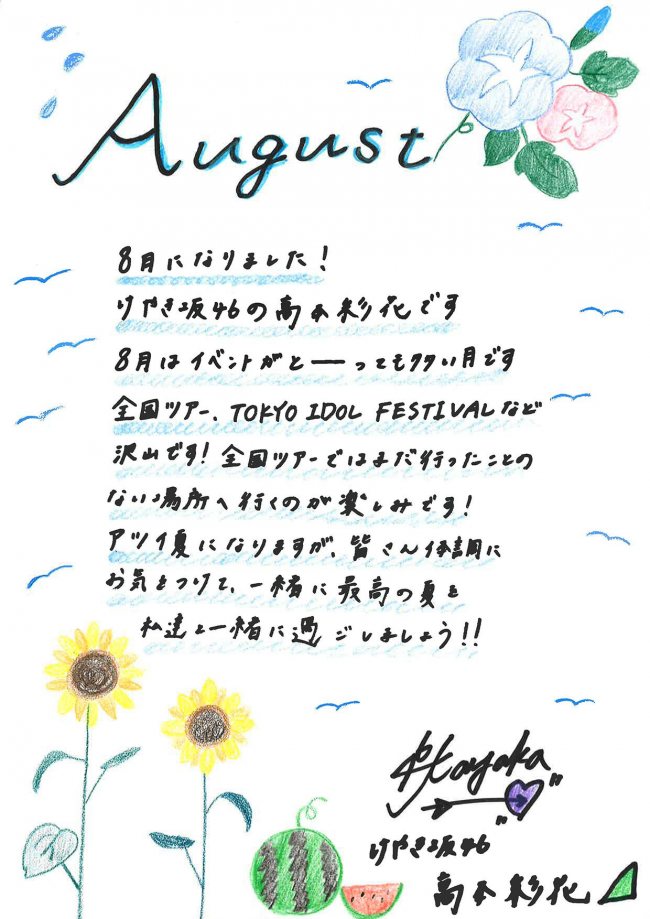 August
8月になりました!
けやき坂46の高本彩花です
8月はイベントがとーーっても多い月です
全国ツアー、TOKYO IDOL FESTIVALなど
沢山です!全国ツアーではまだ行ったことの
ない場所へ行くのが楽しみです!
アツイ夏になりますが、皆さん体調に
お気をつけて、一緒に最高の夏を
私達と一緒に過ごしましょう!!
Ayaka
けやき坂46
高本彩花